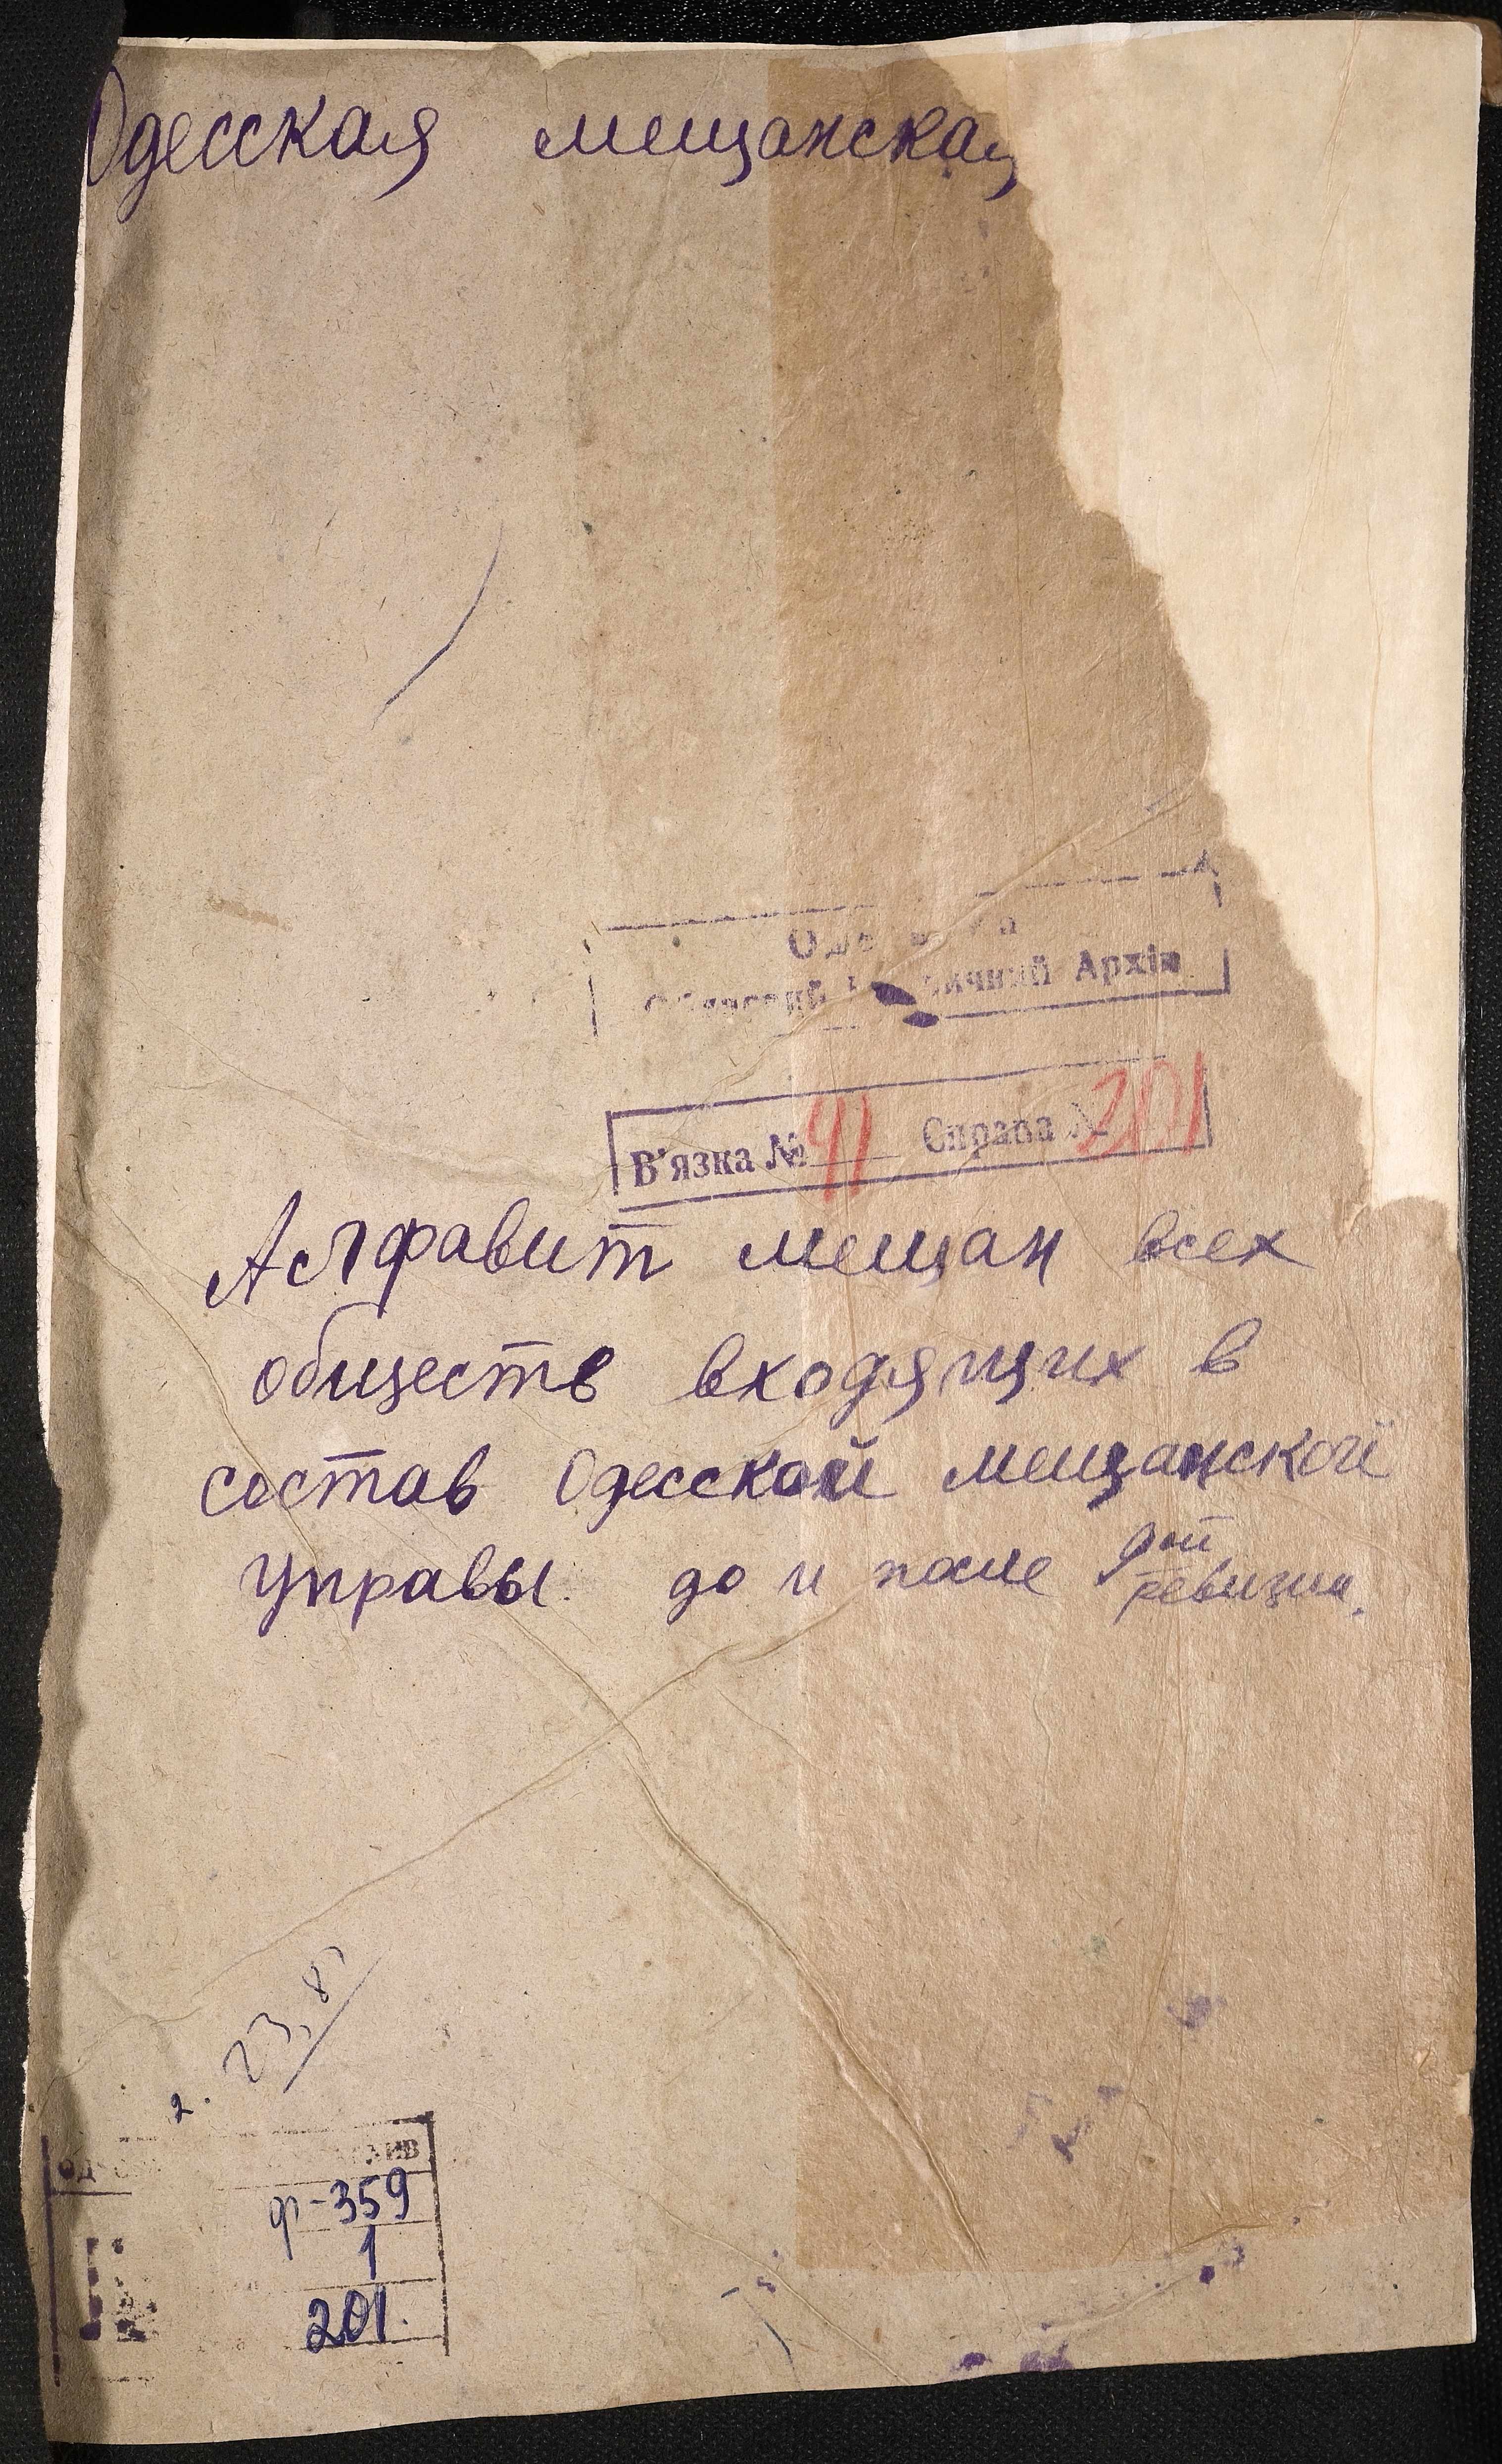 Одесская мещанская
Архів
В'язка № 41 Справа № 201
Алфавит мещан всех
обществ входящих в
состав Одесской мещанской
управы до и после
ревизии.
23,8
2.
ф-359
1
201.